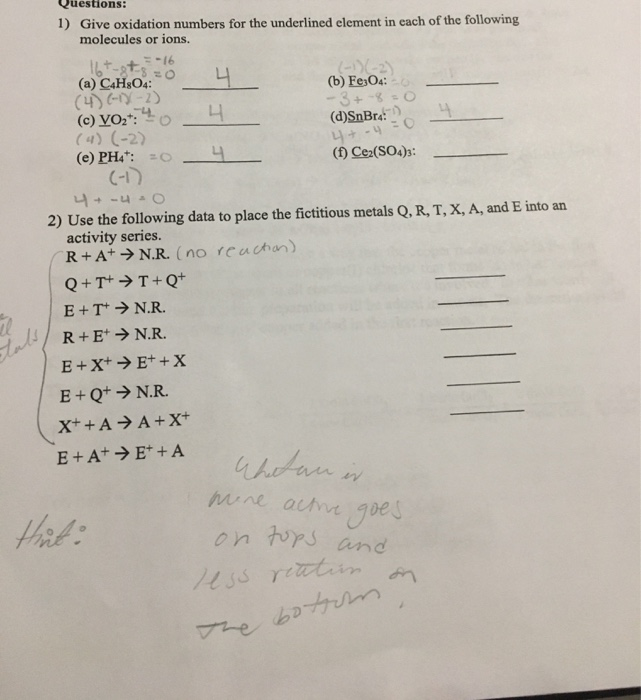 Questions:
1) Give oxidation numbers for the underlined element in each of the following
molecules or ions.
16+-8+-8=0 =-16
(a) C₄H₈O₄: 4
(-1)(-2)
(b) Fe₃O₄:
(4)(-1)(-2)
-3+-8=0
(c) VO₂⁺: -4 0 4
(d)SnBr₄: (-1) =0 4
(4)(-2)
4+-4
(e) PH₄⁺: =0 4
(f) Ce₂(SO₄)₃:
(-1)
4+-4=0
2) Use the following data to place the fictitious metals Q, R, T, X, A, and E into an
activity series.
R + A⁺ → N.R. (no reaction)
Q + T⁺ → T + Q⁺
E + T⁺ → N.R.
R + E⁺ → N.R.
E + X⁺ → E⁺ + X
E + Q⁺ → N.R.
X⁺ + A → A + X⁺
E + A⁺ → E⁺ + A
is
more active goes
Hint:
on tops and
less on
the bottom.